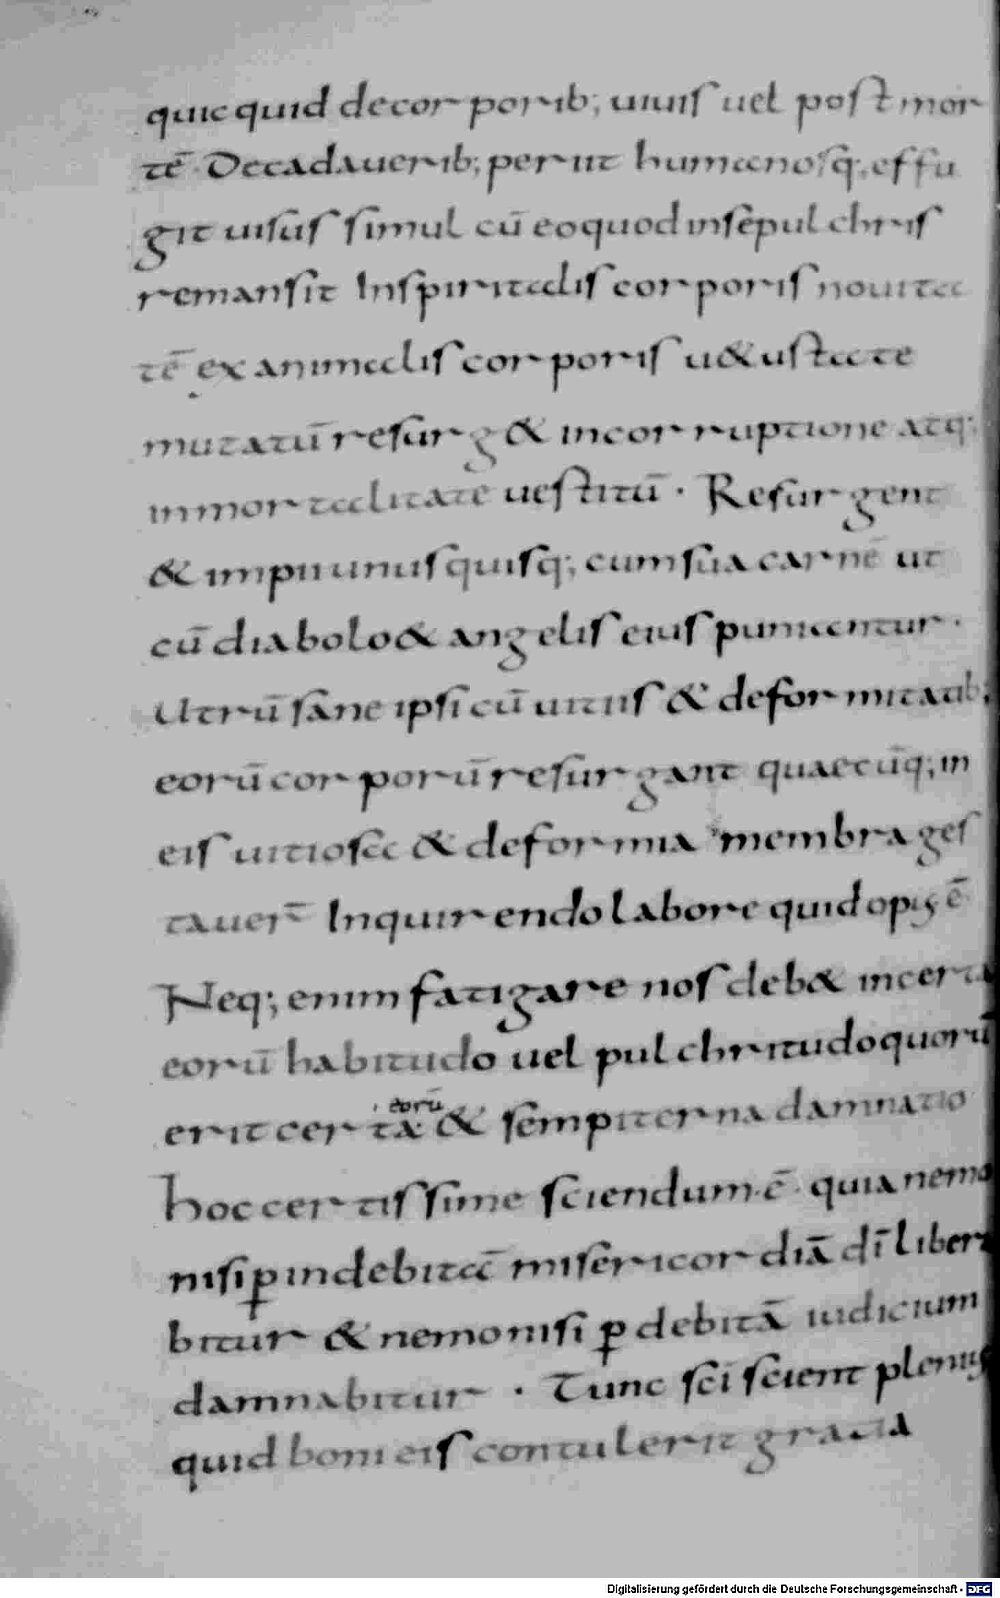 quicquid decorporib; uiuis uel postmor
tē · Decadauerib; periit humanosq; effu
git uisus simul cū eo quod insepulchris
remansit Inspiritalis corporis nouita
tē ex animalis corporis u&ustate
mutatū resurg& incorruptione atq;
inmortalitate uestitū · Resurgent
& impii unusquisq; cum sua carnē ut
cū diabolo & angelis eius puniantur ·
Utrū sane ipsi cū uitiis & deformitatib;
eorū corporū resurgant quaecūq; in
eis uitiosa & deformia membra ges
tauer̄ Inquirendo labore quid opus ē
Neq; enim fatigare nos deb& incerta
eorū habitudo uel pulchritudo quorū
erit certa eorū & sempiterna damnatio
hoc certissime sciendum · ē · quia nemo
nisi ꝑ indebitā misericordiā dī libera
bitur & nemo nisi ꝑ debitā iudicium
damnabitur · Tunc scī scient plenius
quid boni eis contulerit gratia
Digitalisierung gefördert durch die Deutsche Forschungsgemeinschaft · DFG